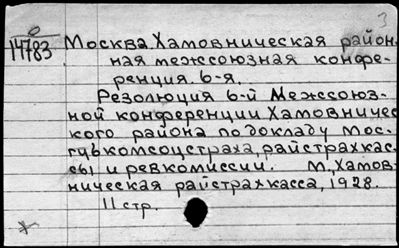 3
0
14783 Москва. Хамовническая район-
ная межсоюзная конфе-
ренция. 6-я.
Резолюция 6-й Межсоюз-
ной конференции Хамовничес
кого района по докладу Мос-
губкомсоцстраха, райстрахкас-
сы и ревкомиссии. М., Хамов-
ническая райстрахкасса, 1928.
11 стр.